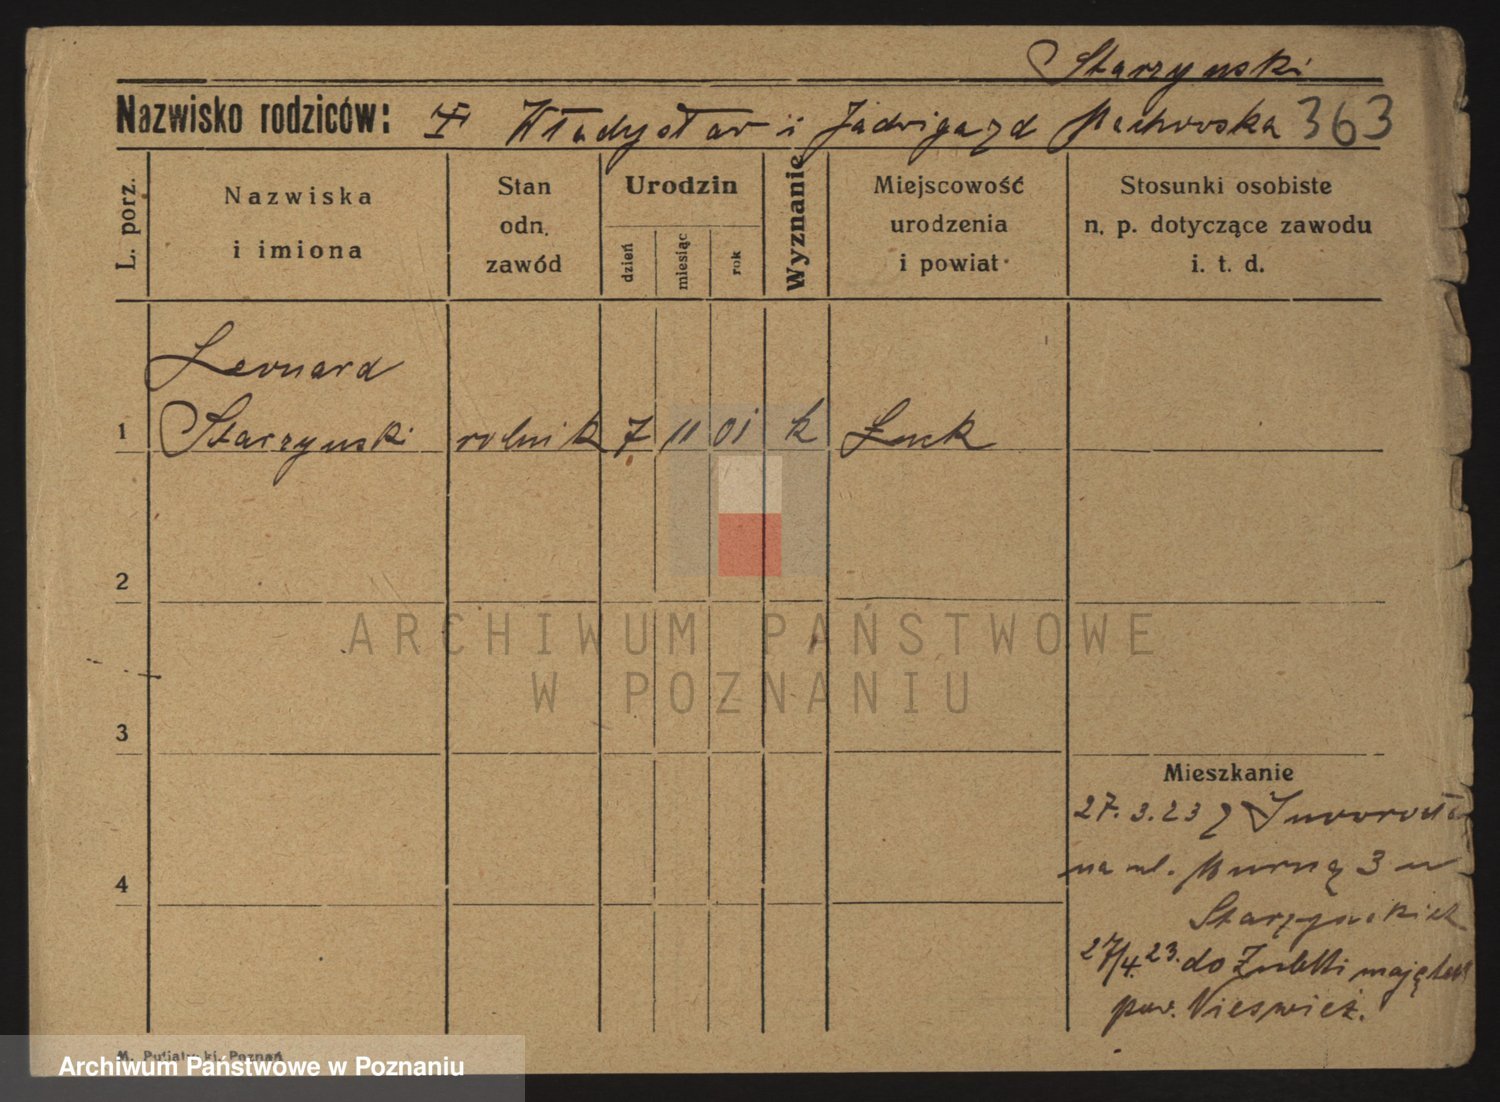 Starzynski
Nazwisko rodziców: Władysław i Jadwiga zd Machowska 363
L. porz.
Nazwiska
i imiona
Stan
odn.
zawód
Urodzin
dzień
miesiąc
rok
Wyznanie
Miejscowość
urodzenia
i powiat
Stosunki osobiste
n. p. dotyczące zawodu
i. t. d.
Leonard
1 Starzynski rolnik 7 11 01 k Łuck
2
3
4
Mieszkanie
27. 3. 23 z Inowrocła
na ul. Murną 3 u
Starzynskich
27/4. 23. do majątek
pow. Nieswież.
ARCHIWUM PAŃSTWOWE
W POZNANIU
M. Putiatycki, Poznań
Archiwum Państwowe w Poznaniu